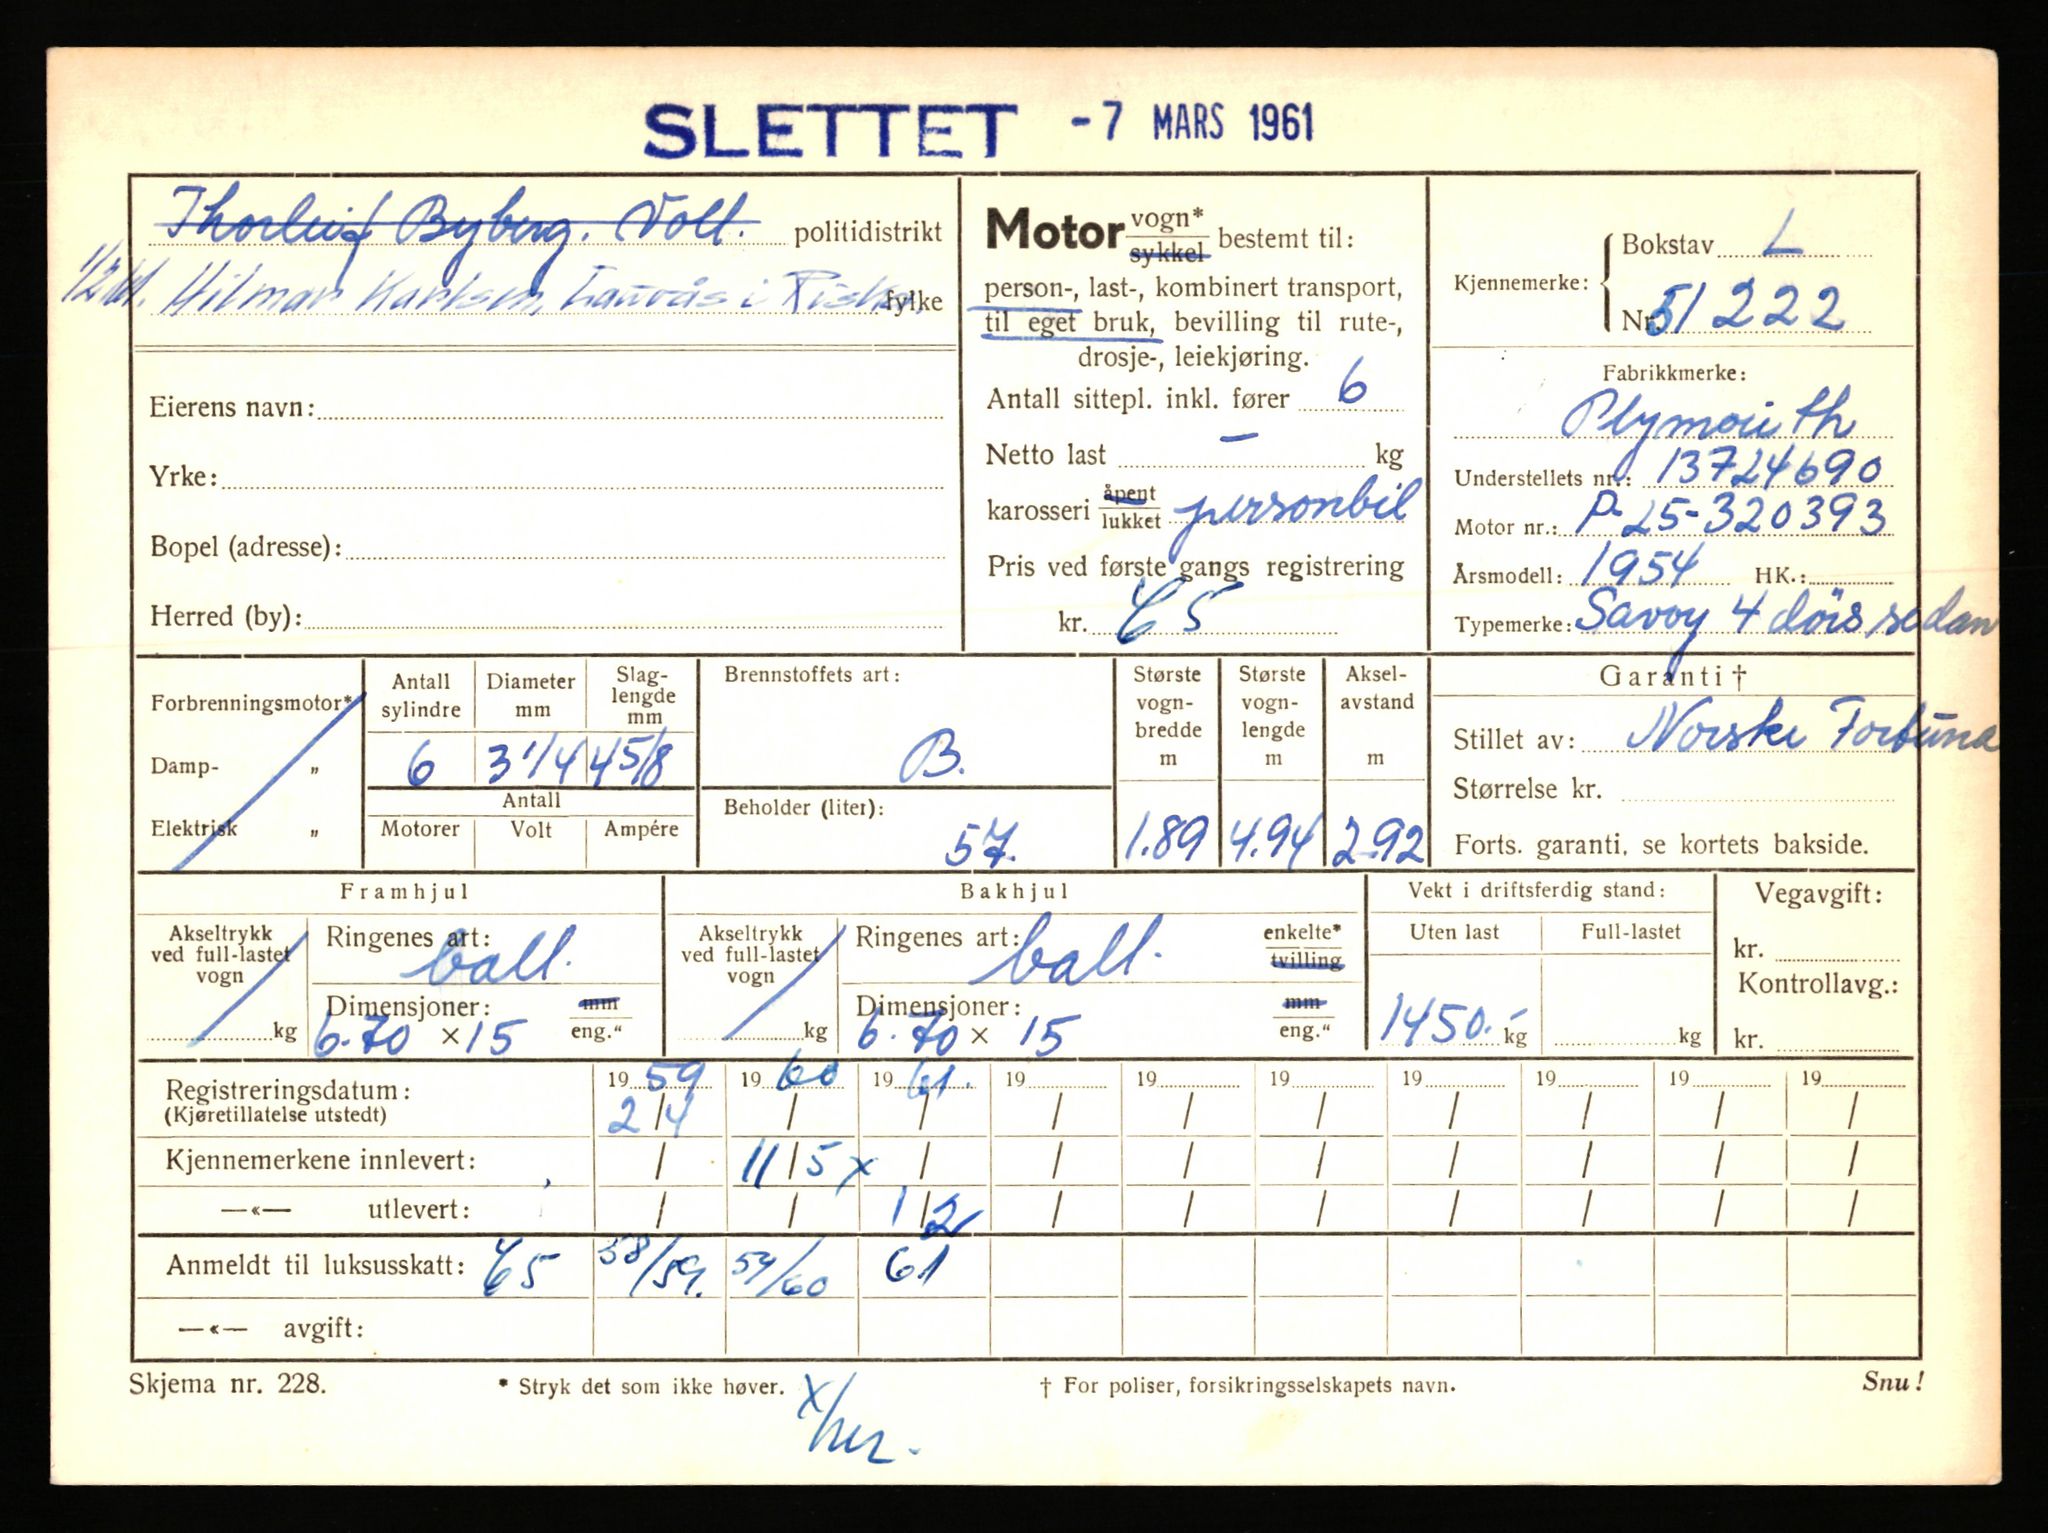 SLETTET -7 MARS 1961
Thorleif Byberg. Voll. politidistrikt
1/2 61. Hilmar Karlsen, Lauvås i Riska, fylke
Eierens navn:
Yrke:
Bopel (adresse):
Herred (by):
Motor vogn*
sykkel bestemt til:
person-, last-, kombinert transport,
til eget bruk, bevilling til rute-,
drosje-, leiekjøring.
Antall sittepl. inkl. fører 6
Netto last — kg
karosseri åpent
lukket personbil
Pris ved første gangs registrering
kr. 65
Kjennemerke: Bokstav L
Nr. 51222
Fabrikkmerke:
Plymouth
Understellets nr.: 13724690
Motor nr.: P-25-320393
Årsmodell: 1954 HK.:
Typemerke: Savoy 4 dörs sedan
Forbrenningsmotor*
Damp- „
Elektrisk „
Antall
sylindre
6
Diameter
mm
3 1/4
Slag-
lengde
mm
4 5/8
Antall
Motorer Volt Ampére
Brennstoffets art:
B.
Beholder (liter):
57.
Største
vogn-
bredde
m
1.89
Største
vogn-
lengde
m
4.94
Aksel-
avstand
m
2.92
Garanti †
Stillet av: Norske Fortuna
Størrelse kr.
Forts. garanti, se kortets bakside.
Framhjul
Akseltrykk
ved full-lastet
vogn
kg
Ringenes art:
ball.
Dimensjoner: mm
6.70 x 15 eng."
Bakhjul
Akseltrykk
ved full-lastet
vogn
kg
Ringenes art: enkelte*
ball. tvilling
Dimensjoner: mm
6.70 x 15 eng."
Vekt i driftsferdig stand:
Uten last Full-lastet
1450.- kg kg
Vegavgift:
kr.
Kontrollavg.:
kr.
Registreringsdatum: 1959 1960 1961. 19 19 19 19 19 19 19
(Kjøretillatelse utstedt) 2/4 / / / / / / / / /
Kjennemerkene innlevert: / 11/5 x / / / / / / / /
—«— utlevert: / / 1/2 / / / / / / /
Anmeldt til luksusskatt: 65 58/59. 59/60 61
—«— avgift:
Skjema nr. 228. * Stryk det som ikke høver. † For poliser, forsikringsselskapets navn. Snu!